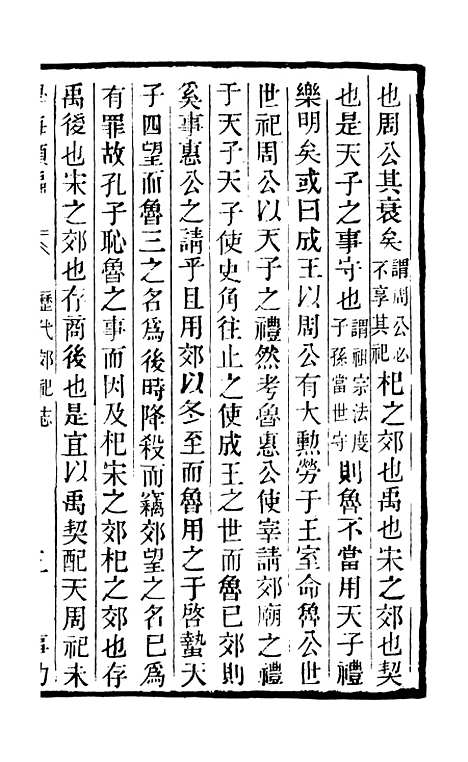 也周公其衰矣謂周公必不享其祀杞之郊也禹也宋之郊也契
也是天子之事守也謂祖宗法度子孫當世守則魯不當用天子禮
樂明矣或曰成王以周公有大勳勞于王室命魯公世
世祀周公以天子之禮然考魯惠公使宰請郊廟之禮
于天子天子使史角往止之使成王之世而魯已郊則
奚事惠公之請乎且用郊以冬至而魯用之于啓蟄天
子四望而魯三之名爲後時降殺而竊郊望之名已爲
有罪故孔子恥魯之事而因及杞宋之郊杞之郊也存
禹後也宋之郊也存商後也是直以禹契配天周祀未
歷代郊祀志